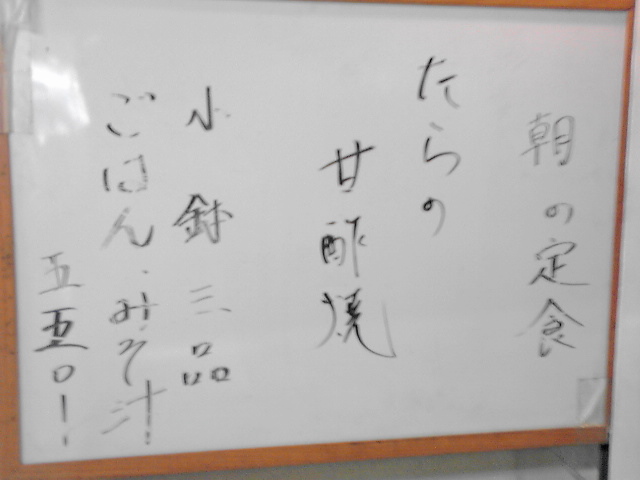 朝の定食
たらの
甘酢焼
小鉢三品
ごはん、みそ汁
五五〇ー